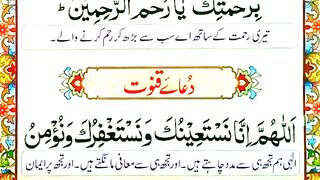 بِرَحْمَتِكَ يَا رَحْمَ الرَّحِمِيْنَ ط
تیری رحمت کے ساتھ اے سب سے بڑھ کر رحم کرنے والے۔
دُعائے قنوت
اَللّٰهُمَّ اِنَّا نَسْتَعِيْنُكَ وَنَسْتَغْفِرُكَ وَنُؤْمِنُ
الٰہی ہم تجھ ہی سے مدد چاہتے ہیں۔ اور تجھ ہی سے معافی مانگتے ہیں۔ اور تجھ پر ایمان